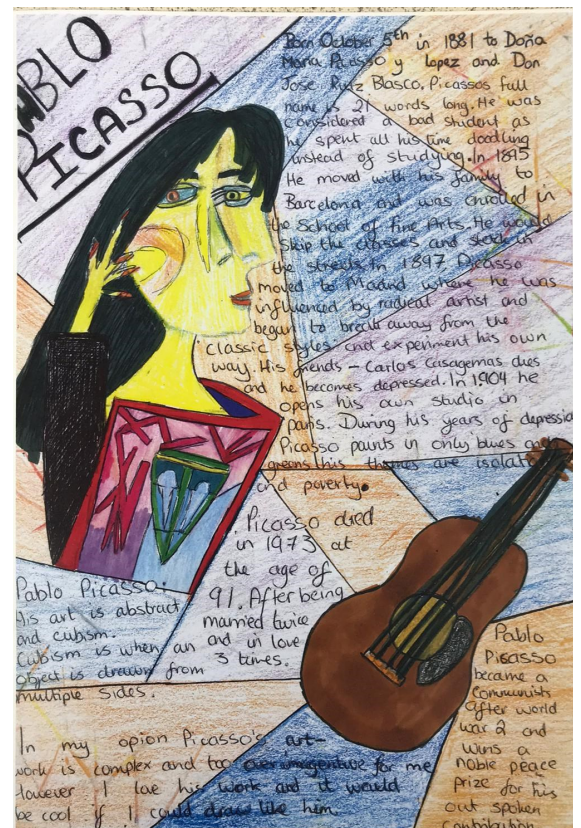 PABLO
PICASSO
Born October 5th in 1881 to Doña
Maria Picasso y lopez and Don
Jose Ruiz Blasco, Picassos full
name is 21 words long. He was
considered a bad student as
he spent all his time doodling
instead of studying. In 1895
He moved with his family to
Barcelona and was enrolled in
the School of Fine Arts. He would
skip the classes and sketch in
the streets. In 1897 Picasso
moved to Madrid where he was
influenced by radical artist and
began to break away from the
classic styles and experiment his own
way. His friends - Carlos Casagemas dies
and he becomes depressed. In 1904 he
opens his own studio in
Paris. During his years of depressio
Picasso paints in only blues and
greens his themes are isolat
and poverty.
Picasso died
in 1973 at
the age of
91. After being
married twice
and in love
3 times.
Pablo Picasso.
His art is abstract
and cubism.
Cubism is when an
object is drawn from
multiple sides.
Pablo
Picasso
became a
Communists
after world
war 2 and
wins a
noble peace
prize for his
out spoken
contribution
In my opion Picasso's art-
work is complex and too over imaginative for me
However I love his work and it would
be cool if I could draw like him.